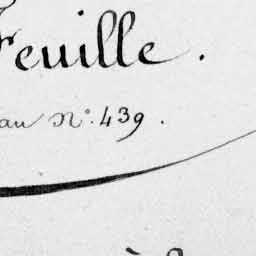 Feuille.
au N° 439.